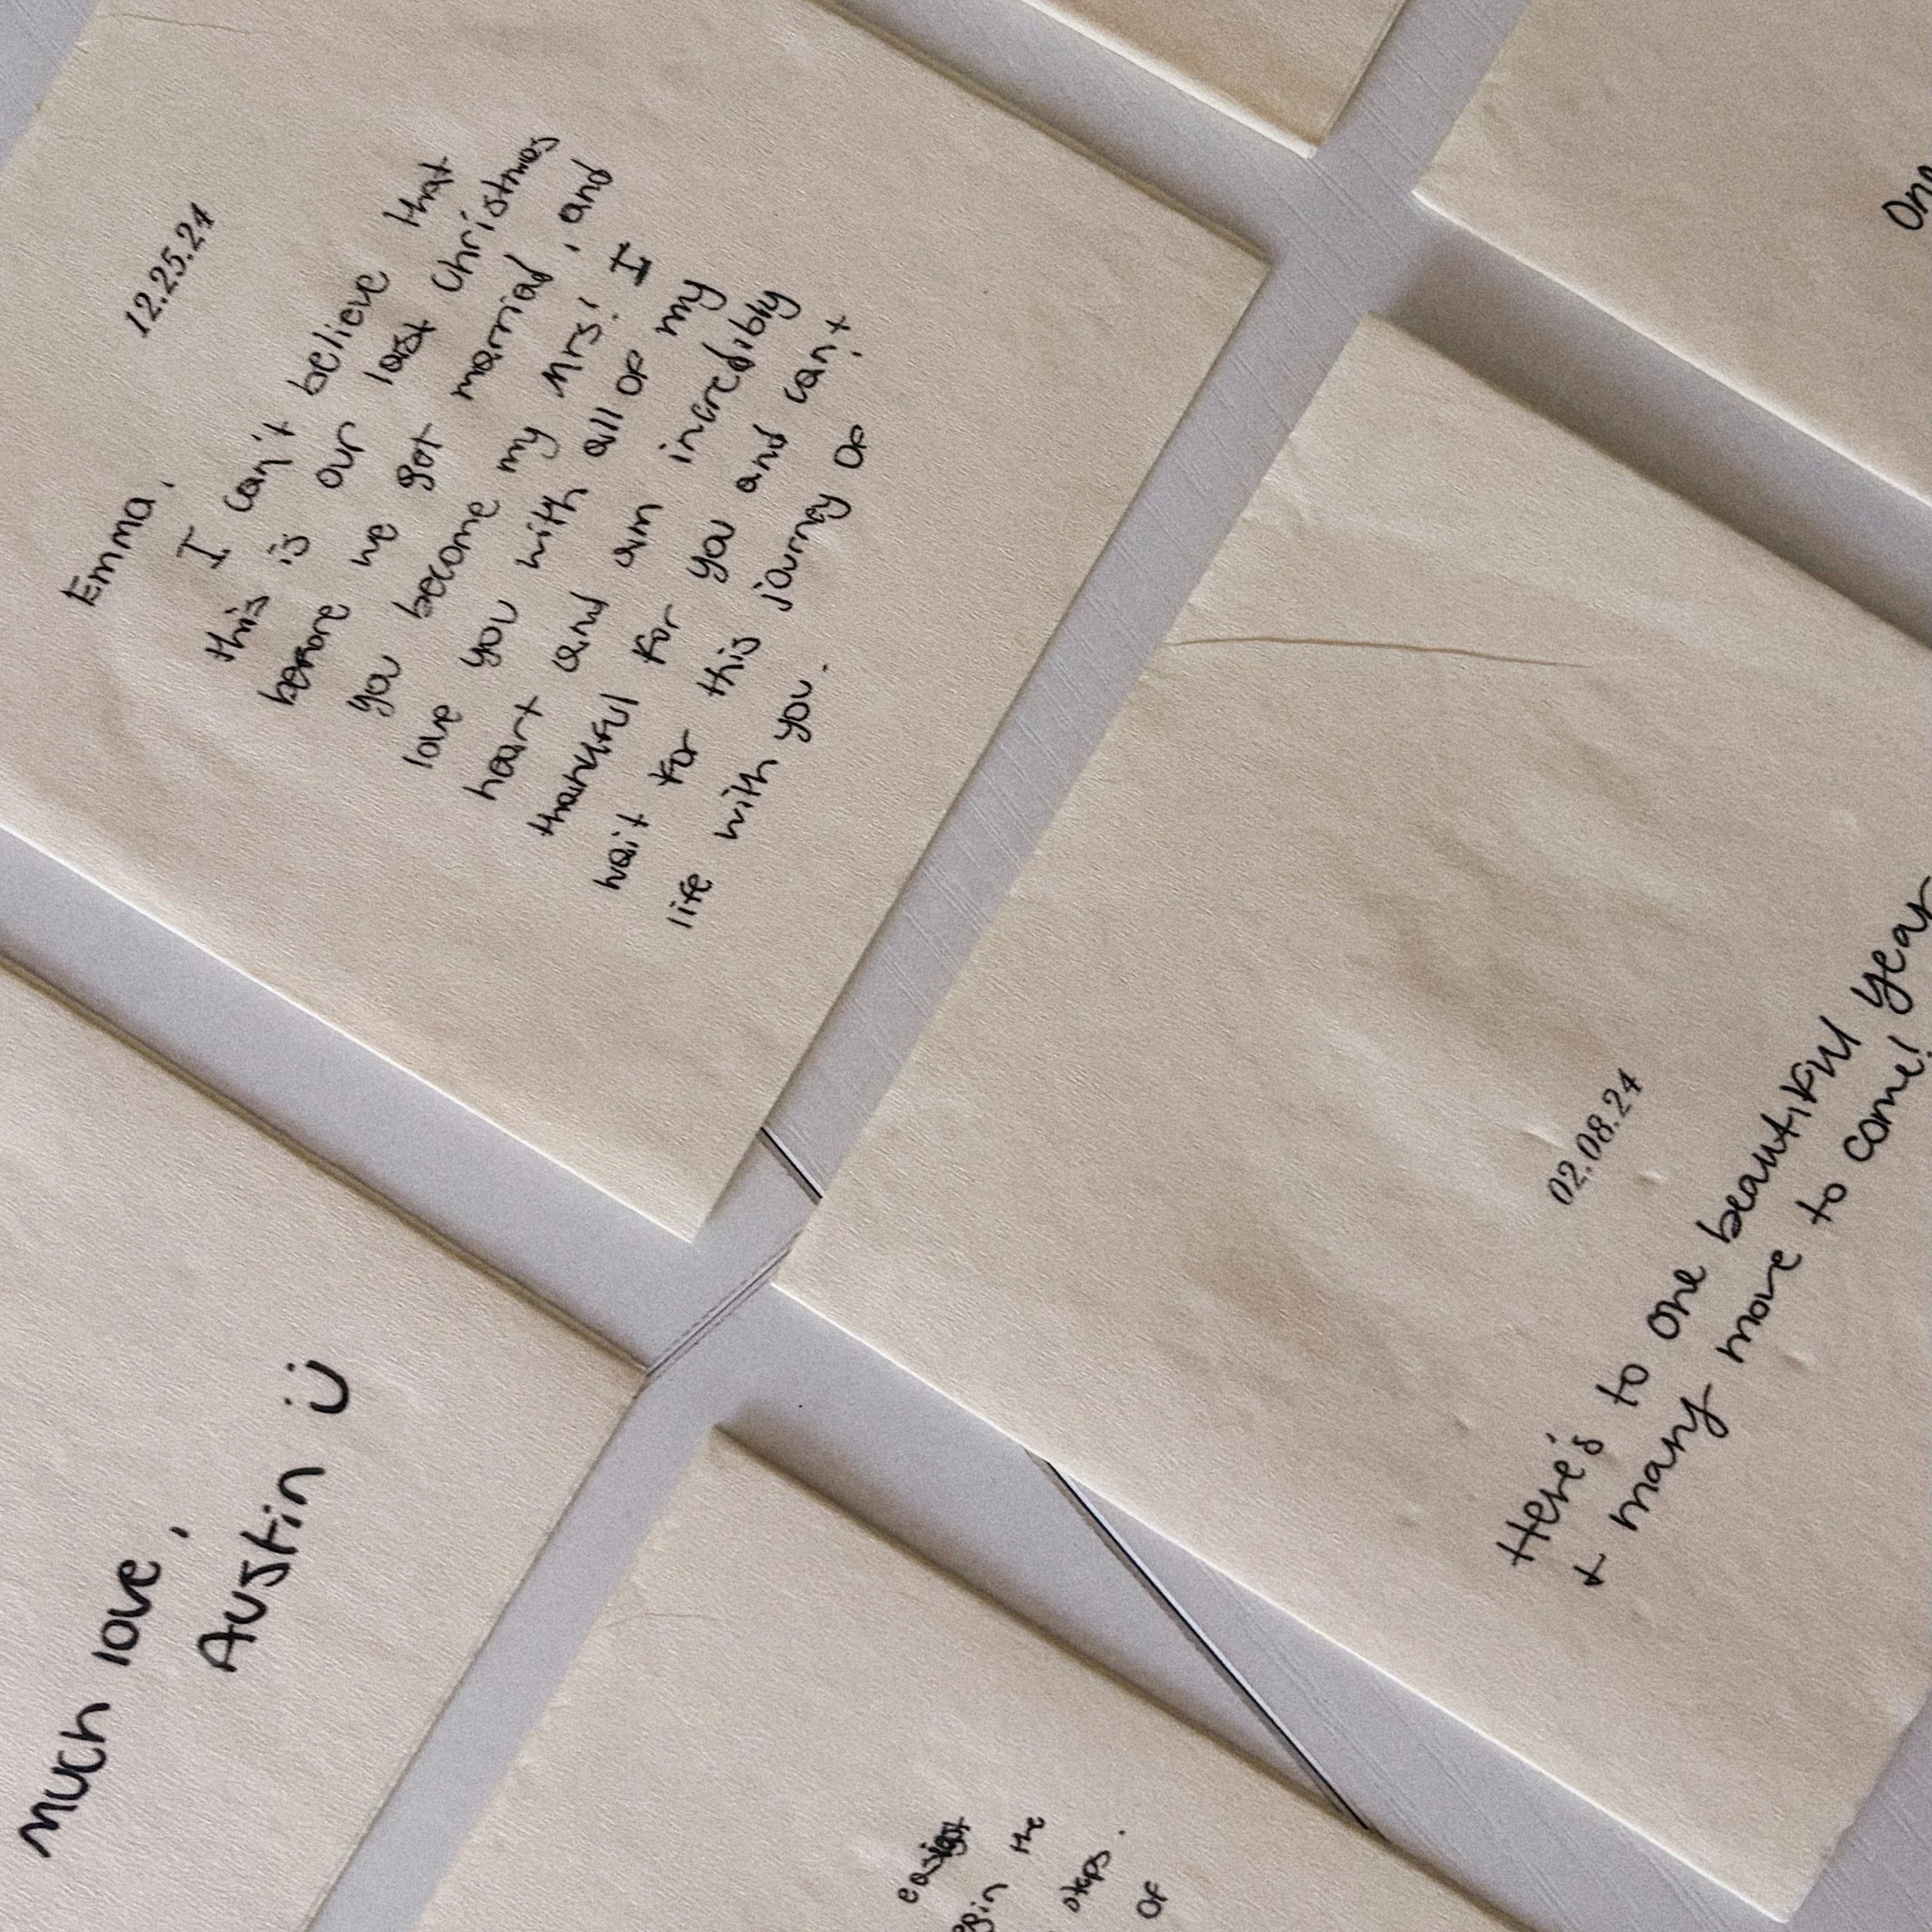 12.25.24
Emma,
I can't believe that
this is our last Christmas
before we got married, and
you become my Mrs! I
love you with all of my
heart and am incredibly
thankful for you and can't
wait for this journey of
life with you.
02.08.24
Here's to one beautiful year
+ many more to come!
much love,
Austin Ü
easiest
the
steps.
of